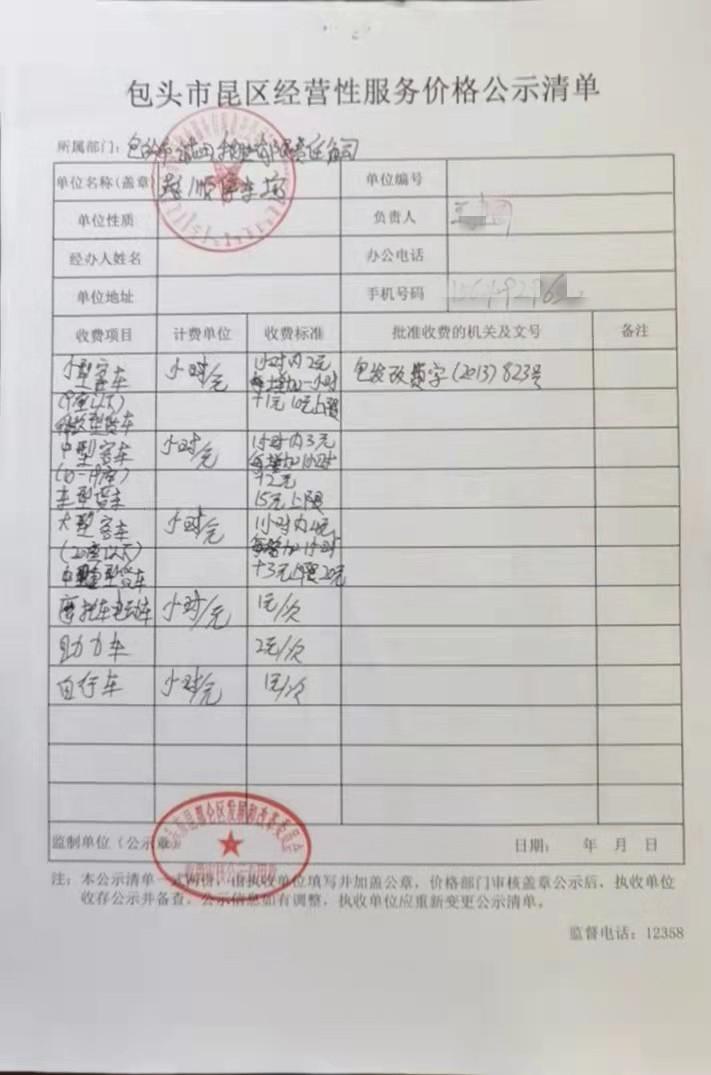 包头市昆区经营性服务价格公示清单
所属部门：
单位名称(盖章) 顺停车场 单位编号
单位性质 负责人 王
经办人姓名 办公电话
单位地址 手机号码
收费项目 计费单位 收费标准 批准收费的机关及文号 备注
小型客车 小时/元 1小时内2元 包发改费字(2013)823号
每增加一小时
(9座以下) +1元 10元上限
中型客车 小时/元 1小时内3元
每增加1小时
(10-19座) +2元
15元上限
大型客车 小时/元 1小时内4元
(20座以上) 每增加1小时
+3元上限20元
摩托车电动车 小时/元 1元/次
助力车 2元/次
自行车 小时/元 1元/次
监制单位（公示章） 日期： 年 月 日
昆都仑区发展和改革委员会
注：本公示清单一式两份，由执收单位填写并加盖公章，价格部门审核盖章公示后，执收单位
收存公示并备查。公示信息如有调整，执收单位应重新变更公示清单。
监督电话：12358